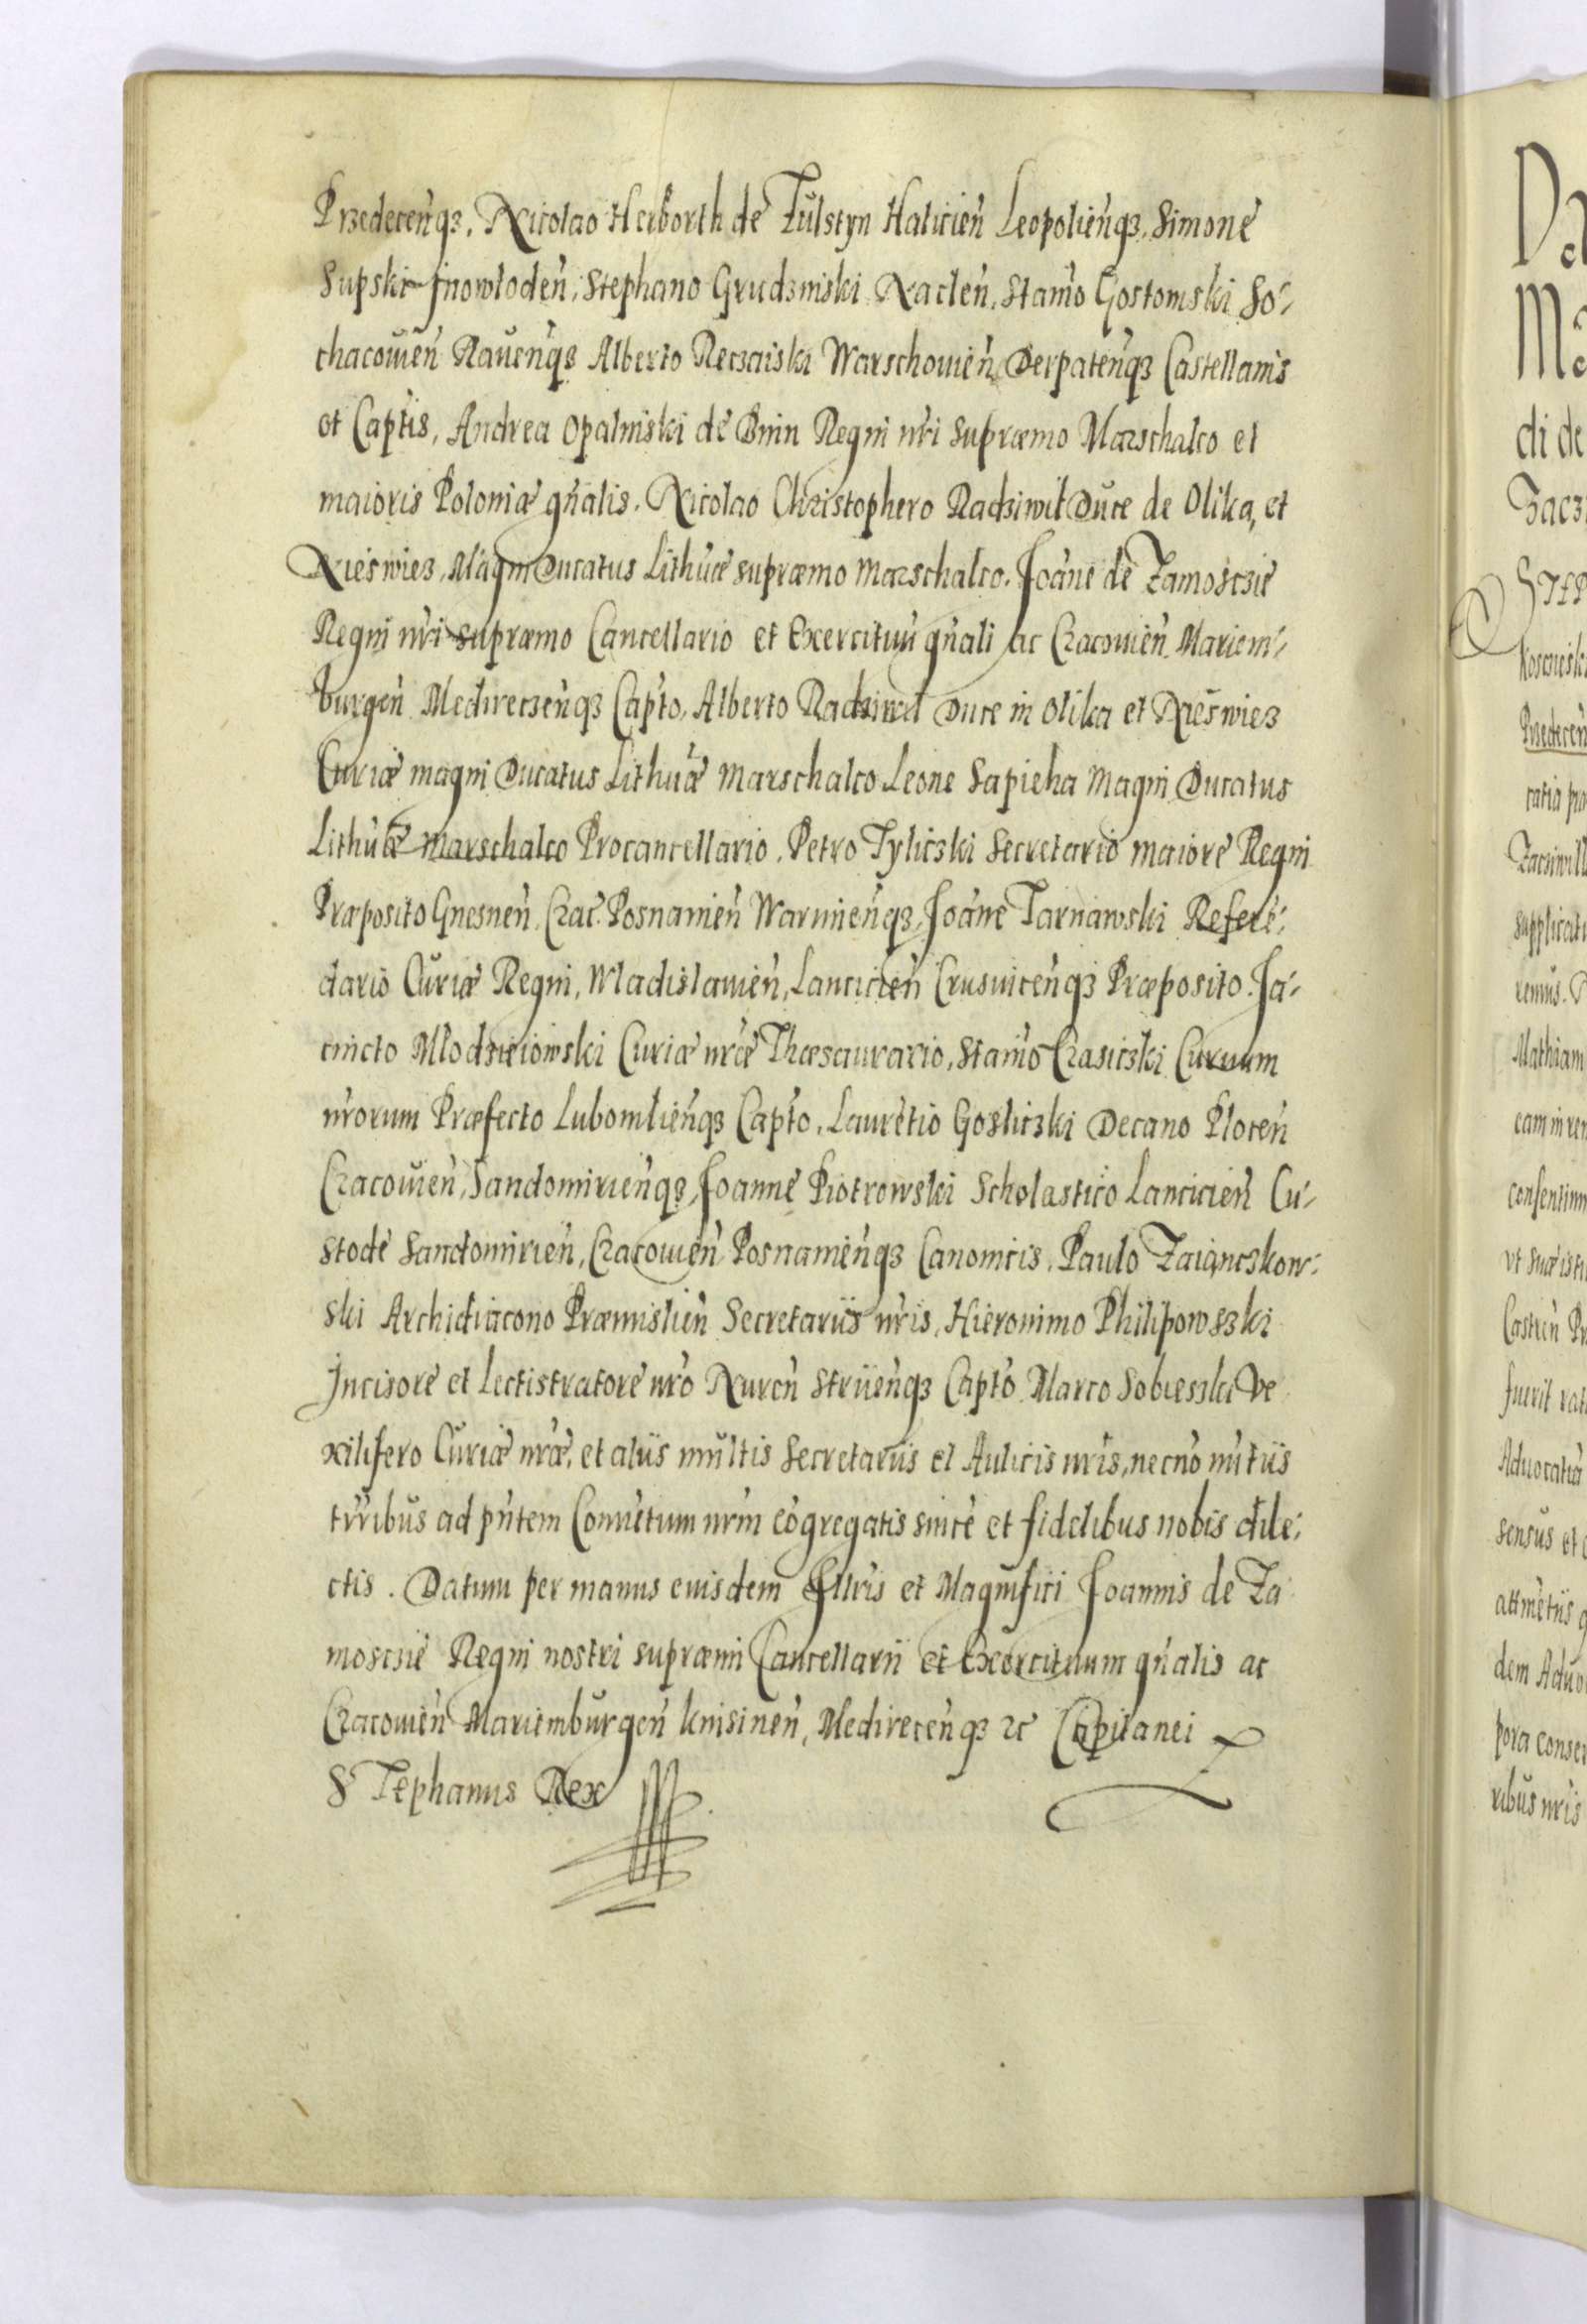 Przedecen̄qз, Nicolao Herborth de Fulstyn Halicien̄ Leopolien̄qз, Simone
Supski Jnowłoden̄, Stephano Grudzinski Naclen̄, Stan̄o Gostomski So-
chacouien̄ Rauen̄qз Alberto Reczaiski Warschouien̄ Derpaten̄qз Castellanis
et Cap̄tis, Andrea Opalinski de Bnin Regni nr̄i supræmo Marschalco et
maioris Poloniæ gn̄alis. Nicolao Christophero Radziwił Duce de Olika, et
Nieswiez, Magni Ducatus Lithuǣ supræmo Marschalco. Joāne de Zamosczie
Regni nr̄i supræmo Cancellario et Exercituū gn̄ali ac Cracouien̄ Mariem-
burgen̄ Medireczen̄qз Cap̄to, Alberto Radziwil Duce in Olika et Nieswiez
Curiæ magni Ducatus Lithuǣ Marschalco Leone Sapieha Magni Ducatus
Lithuǣ Marschalco Procancellario. Petro Tyliczki Secretario maiore Regni
Præposito Gnesnen̄, Crac̄. Posnanien̄ Warmien̄qз, Joāne Tarnawski Referē-
dario Curiæ Regni, Wladislauien̄, Lancicien̄ Crusuicen̄qз Præposito. Ja-
cincto Młodzieiowski Curiæ nr̄æ Thæsaurario, Stan̄o Crasiczki Curuum
nr̄orum Præfecto Lubomlien̄qз Cap̄to, Laurētio Gosliczki Decano Plocen̄
Cracouien̄, Sandomirien̄qз, Joanne Piotrowski Scholastico Lancicien̄ Cu-
stode Sandomirien̄, Cracouien̄ Posnanien̄qз Canonicis. Paulo Zaiączkow-
ski Archidiacono Præmislien̄ Secretariis nr̄is, Hieronimo Philipowszki
Jncisore et Lectistratore nr̄o Nuren̄ Striien̄qз Cap̄to Marco Sobieszki Ve
xilifero Curiæ nr̄æ, et aliis multis Secretariis et Aulicis nr̄is, necnō nūtiis
tr̄ribus ad pn̄tem Conuētum nr̄m cōgregatis sincē et fidelibus nobis dile-
ctis. Datum per manus eiusdem Jllr̄is et Magnifici Joannis de Za
mosczie Regni nostri supræmi Cancellarii et Exercituum gn̄alis ac
Cracouien̄ Mariemburgen̄ Knisinen̄, Medirecen̄qз ꝛc Capitanei
Stephanus Rex